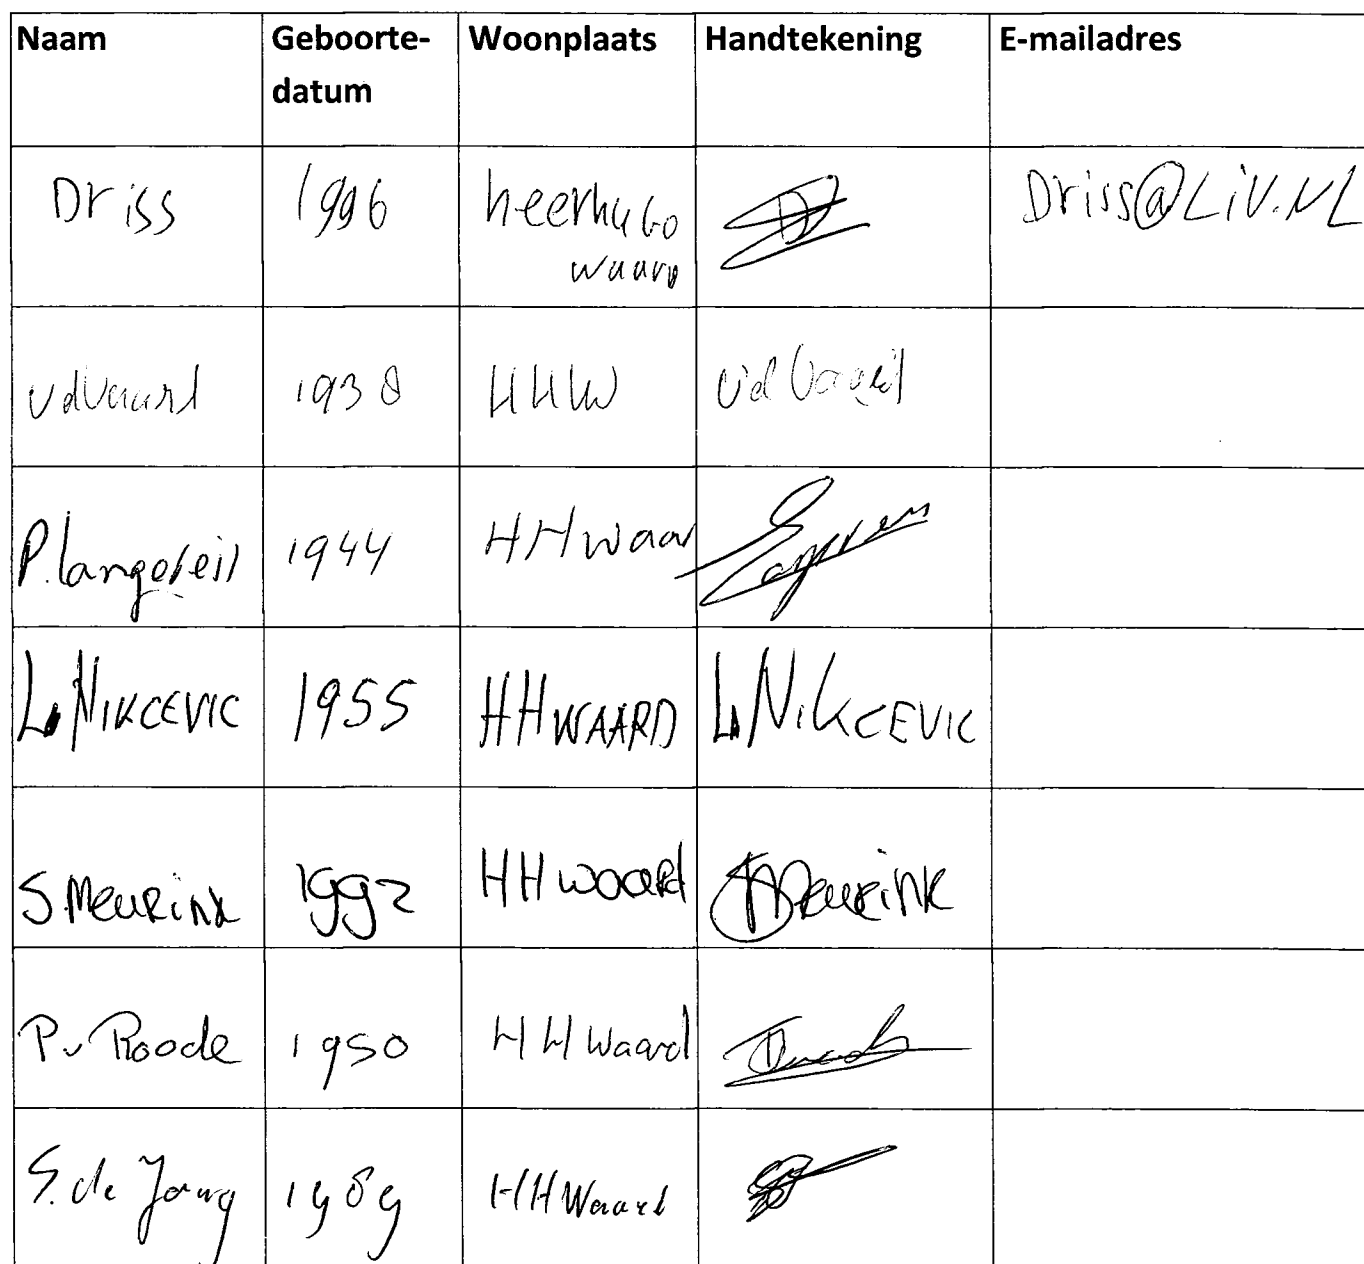 Naam Geboorte- Woonplaats Handtekening E-mailadres
datum
Driss 1996 heerhugo Driss@LiV.NL
waard
vd Vaard 1938 HHW vd Vaard
P. 1944 HHwaar
L. NIKCEVIC 1955 HHWAARD L. NIKCEVIC
S Meurink 1992 HHwaard Meurink
P v Roode 1950 HHwaard
S. de Jong 1989 HHWaard